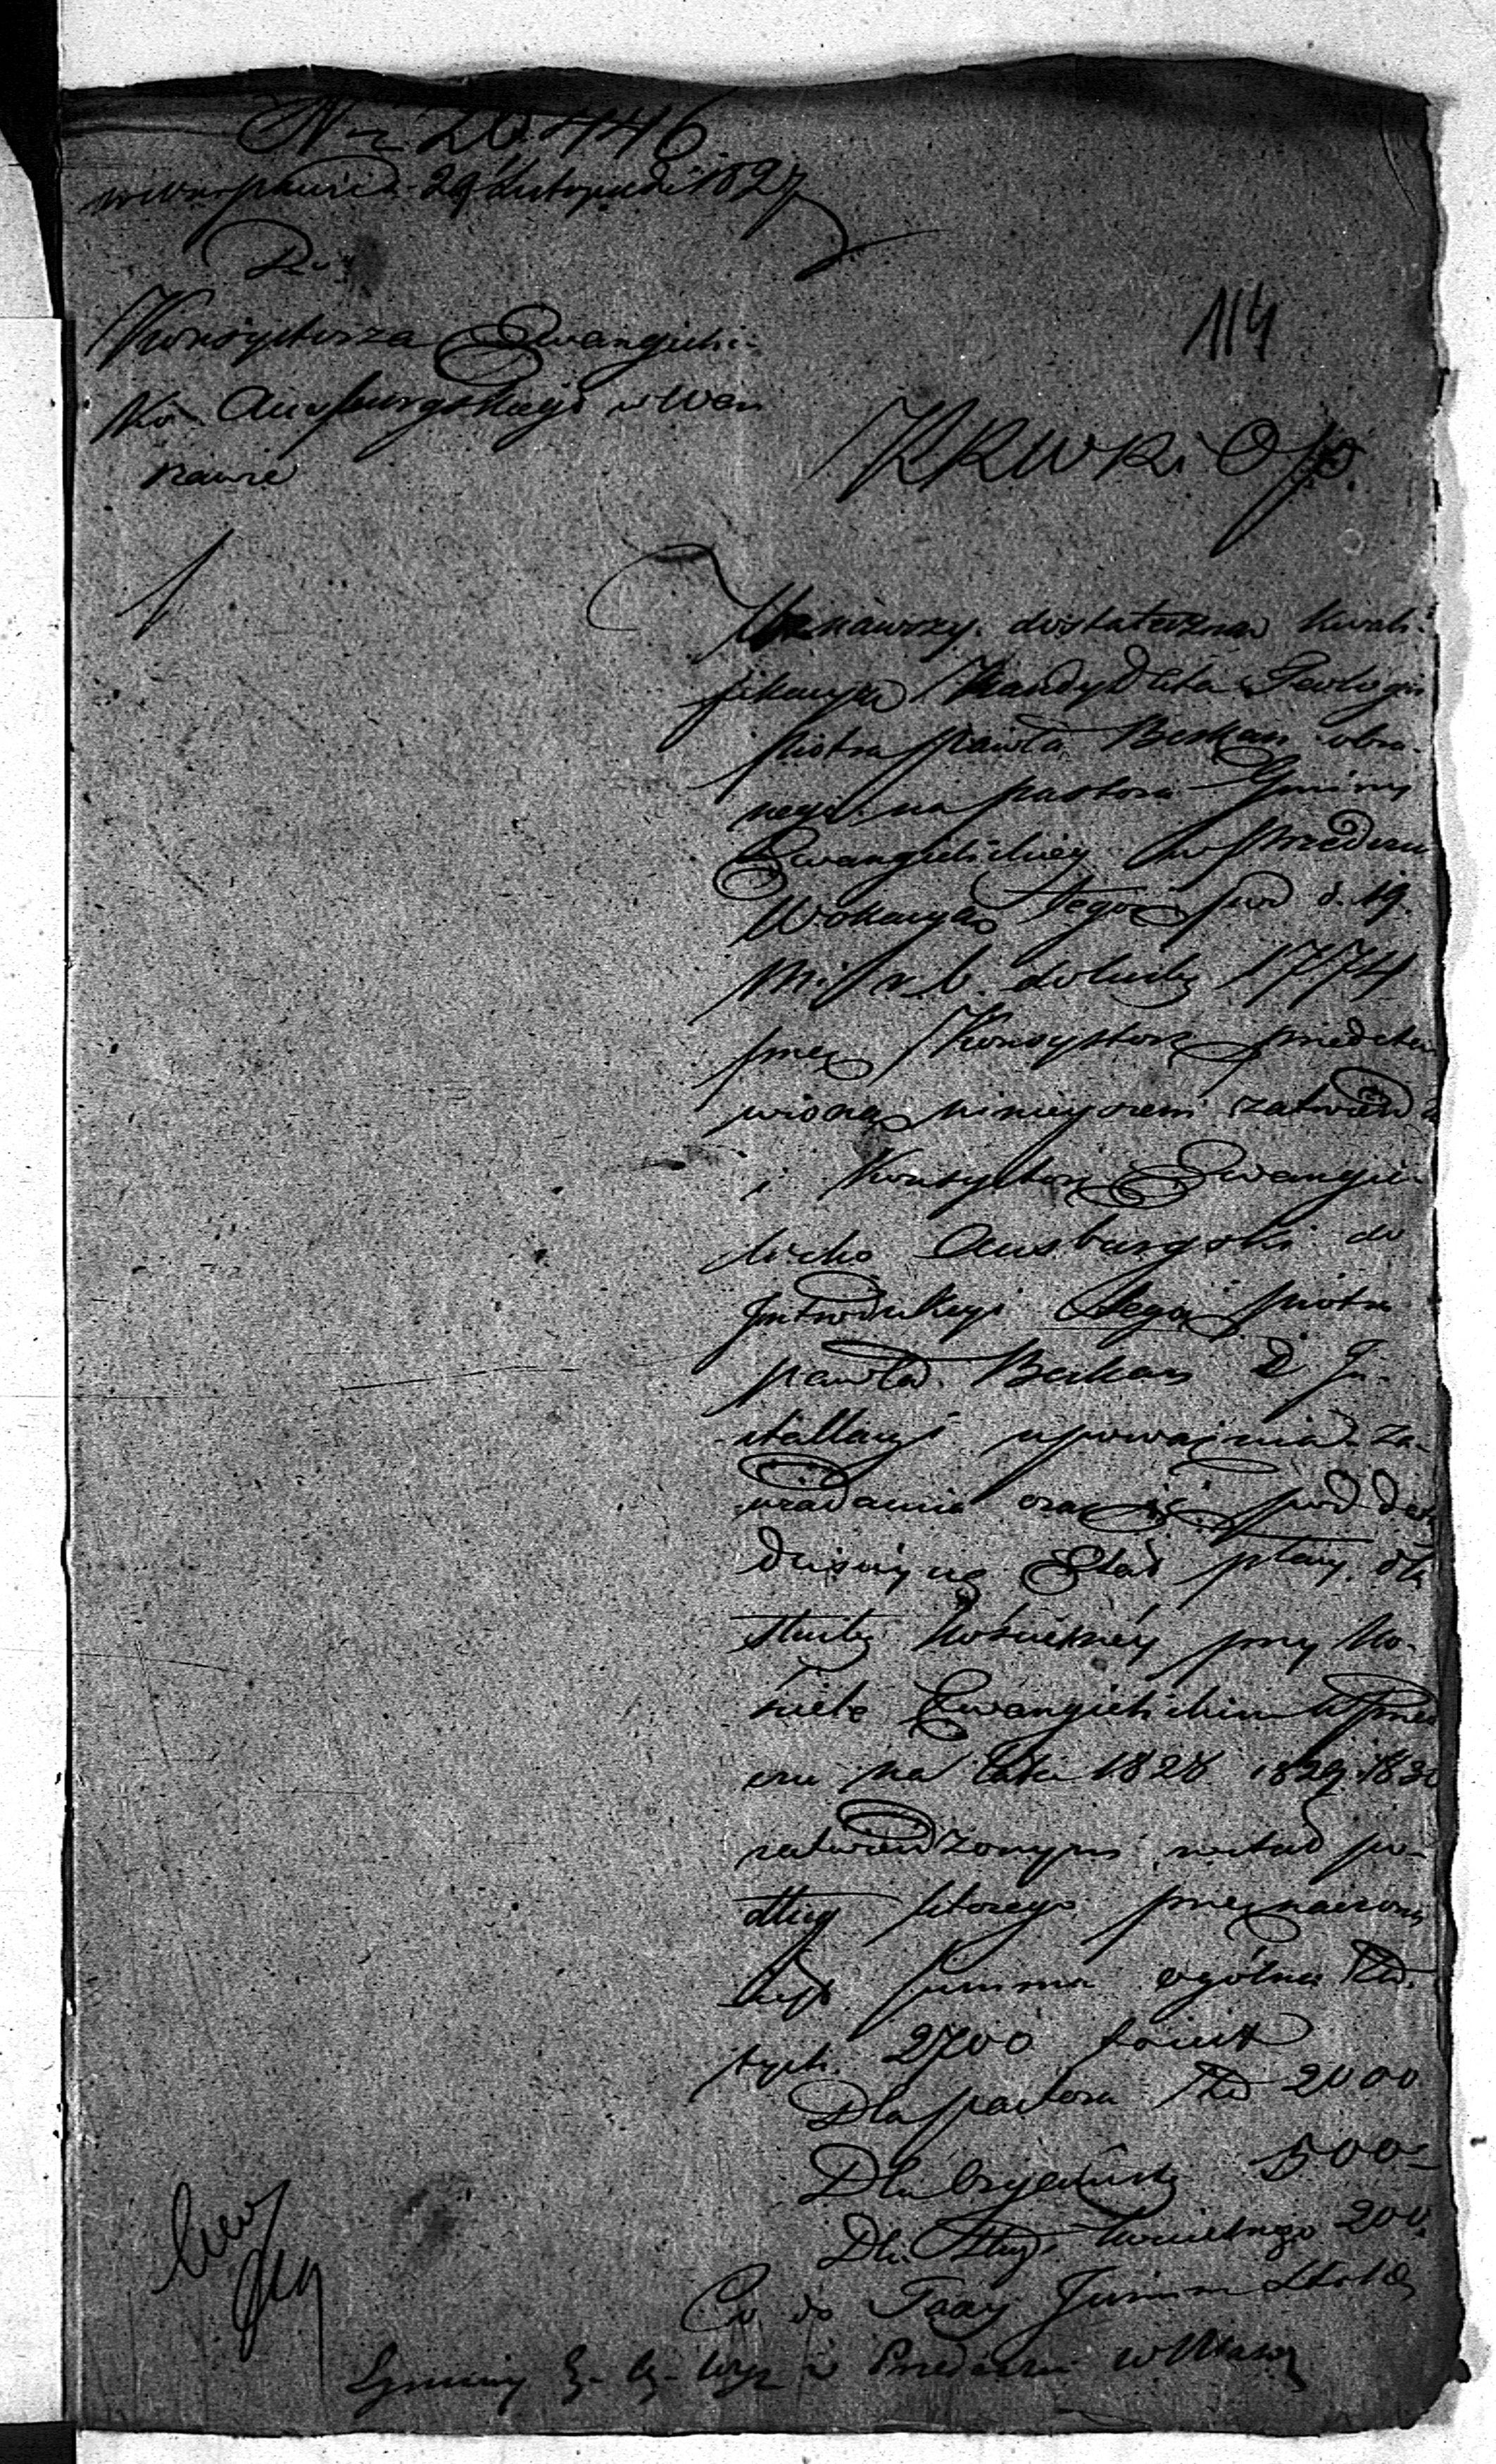 Nr 20.446
w Warszawie 29 Listopada 1827
Do
Konsystorza Ewangieli-
ko Ausburgskiego w War
szawie
114
KRWRiOP.
Uznawszy dostateczną kwali-
fikacyą Kandydata Teologii
Piotra Pawła Berkau obra-
nego na pastora Gminy
Ewangielickiey w Przedczu
Wokacyą tegoż pod d. 19
m. i r. b. do liczby 1774
przez Konsystorz przedsta-
wioną ninieyszem zatwierdza
i Konsystorz Ewangie-
licko Ausburgski do
Introdukcyi tegoż Piotra
Pawła Berkau i In-
stallacyi upoważnia. Za-
wiadamia oraz iż pod
dzisieyszą Etat płacy dla
służby kościelney przy ko-
ściele Ewangielickim w Przed
czu na lata 1828 1829 1830
zatwierdzonym został po-
dług którego przeznaczoną
jest summa ogólna Złł.
pych 2700 to iest
Dla pastora Zł 2000
Dla Organisty 500
Dla Sługi kościelnego 200
Co do Taxy Jurium Stolae
Gminy w Przedczu w